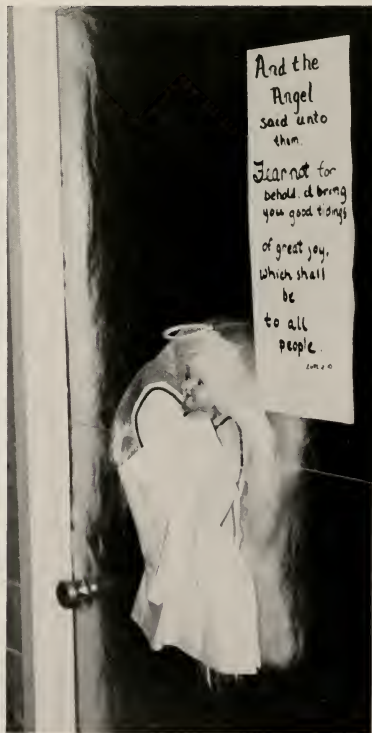 And the
Angel
said unto
them.
Fear not for
behold. I bring
you good tidings
of great joy,
which shall
be
to all
people.